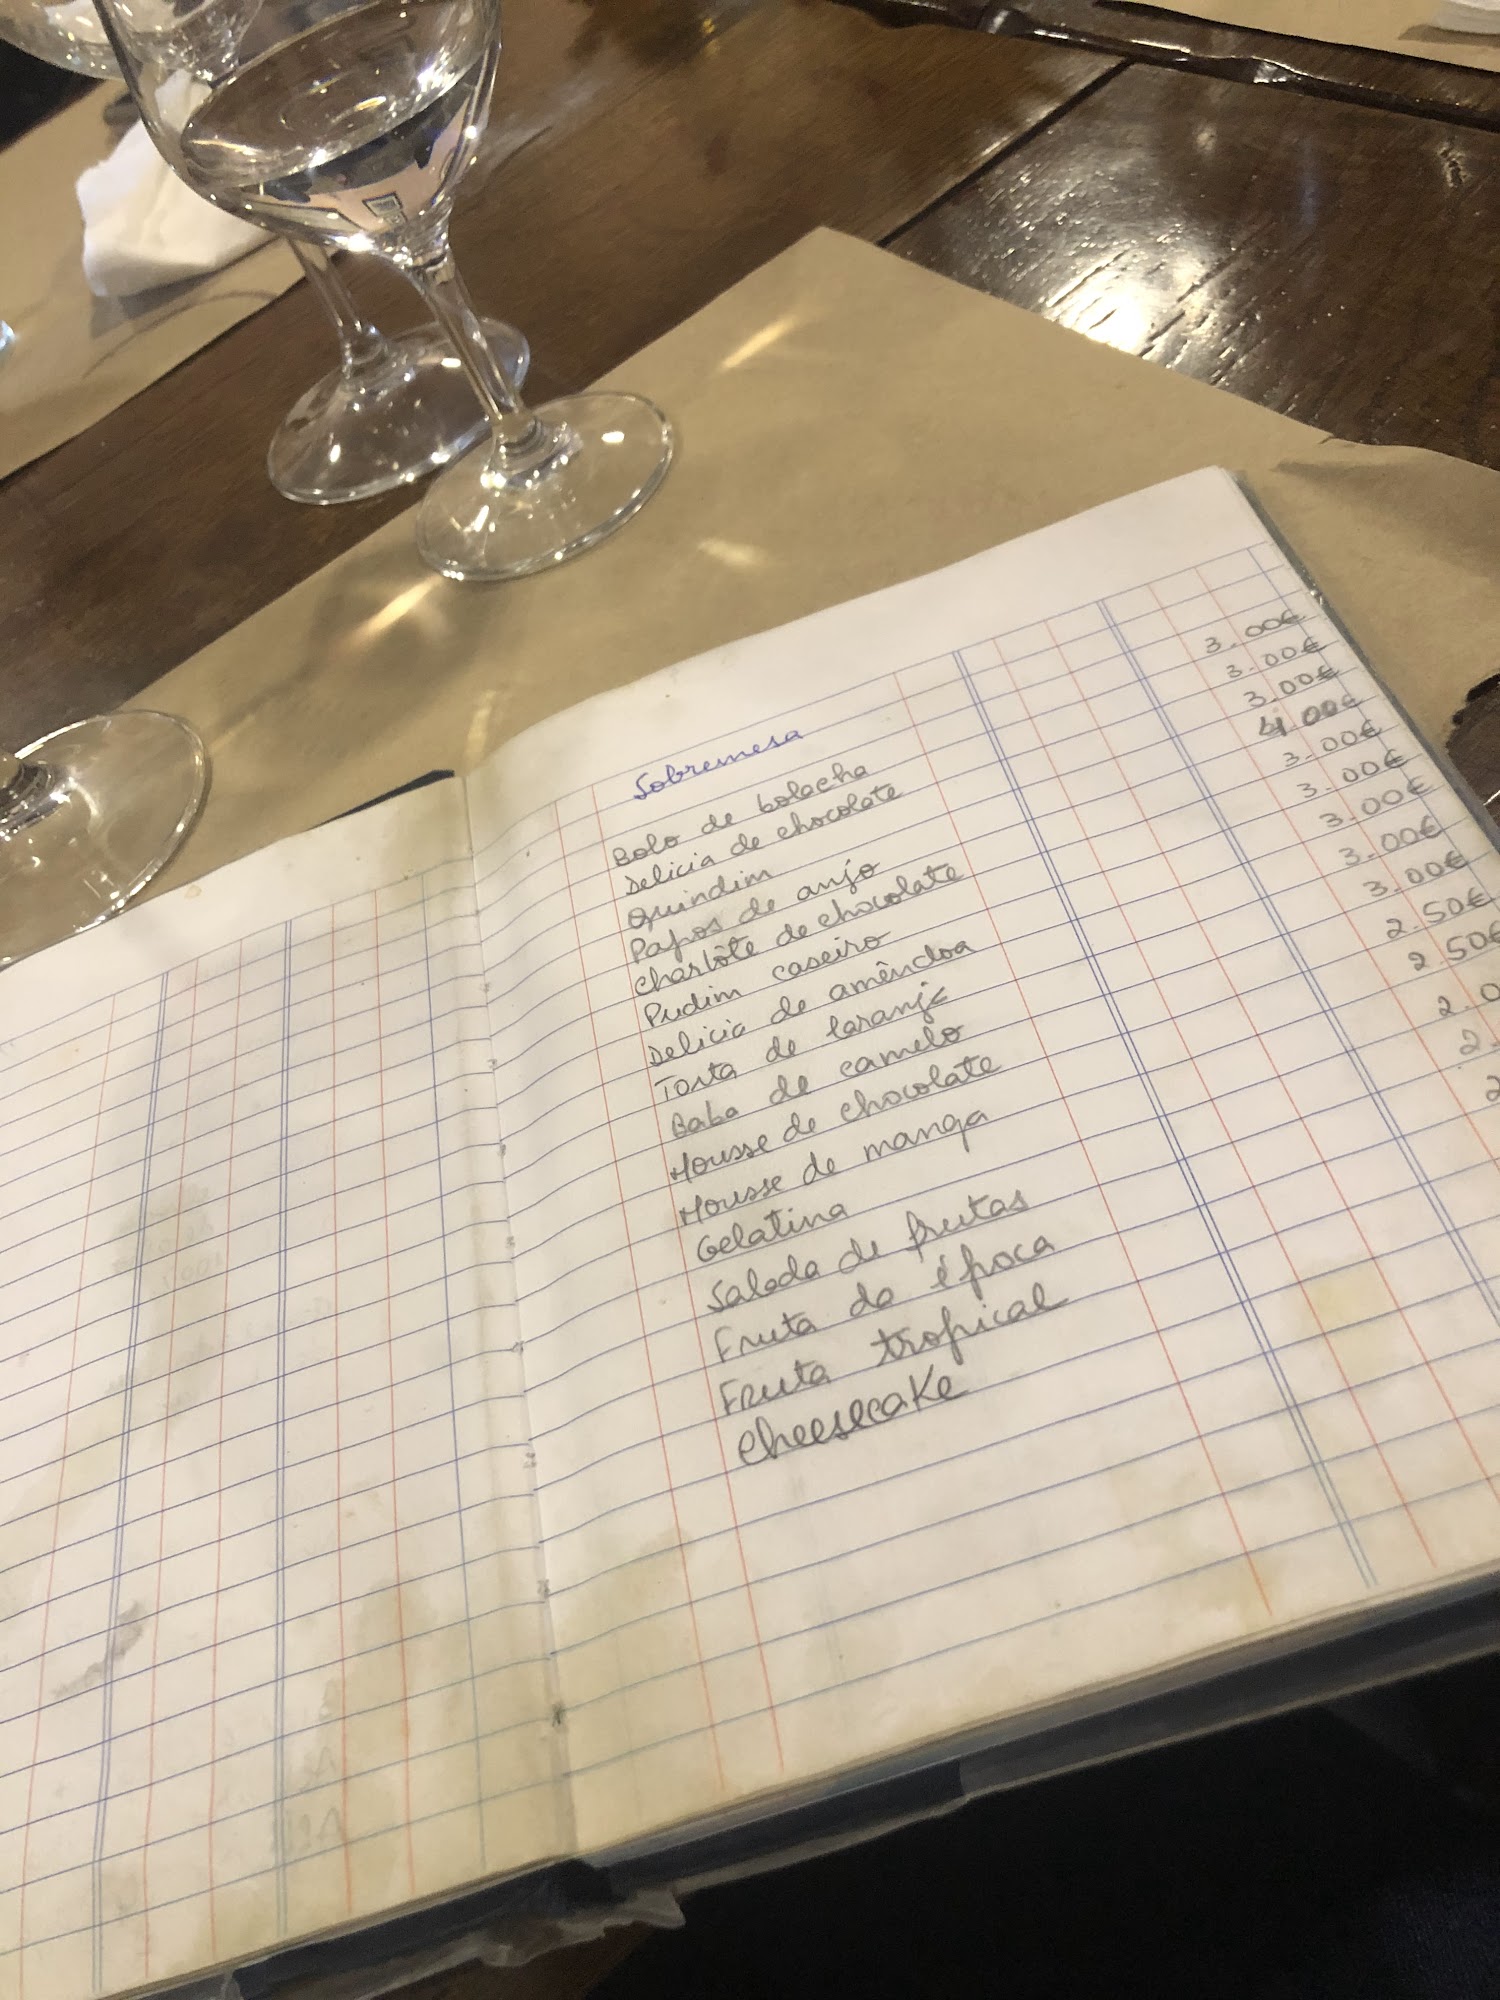 Sobremesa
Bolo de bolacha 3.00€
Delicia de chocolate 3.00€
Quindim 3.00€
Papos de anjo 4.00€
Charlôte de chocolate 3.00€
Pudim caseiro 3.00€
Delicia de amêndoa 3.00€
Torta de laranja 3.00€
Baba de camelo 3.00€
Mousse de chocolate 2.50€
Mousse de manga 2.50€
Gelatina 2.0
Salada de frutas 2.
Fruta da época 2
Fruta tropical
Cheesecake